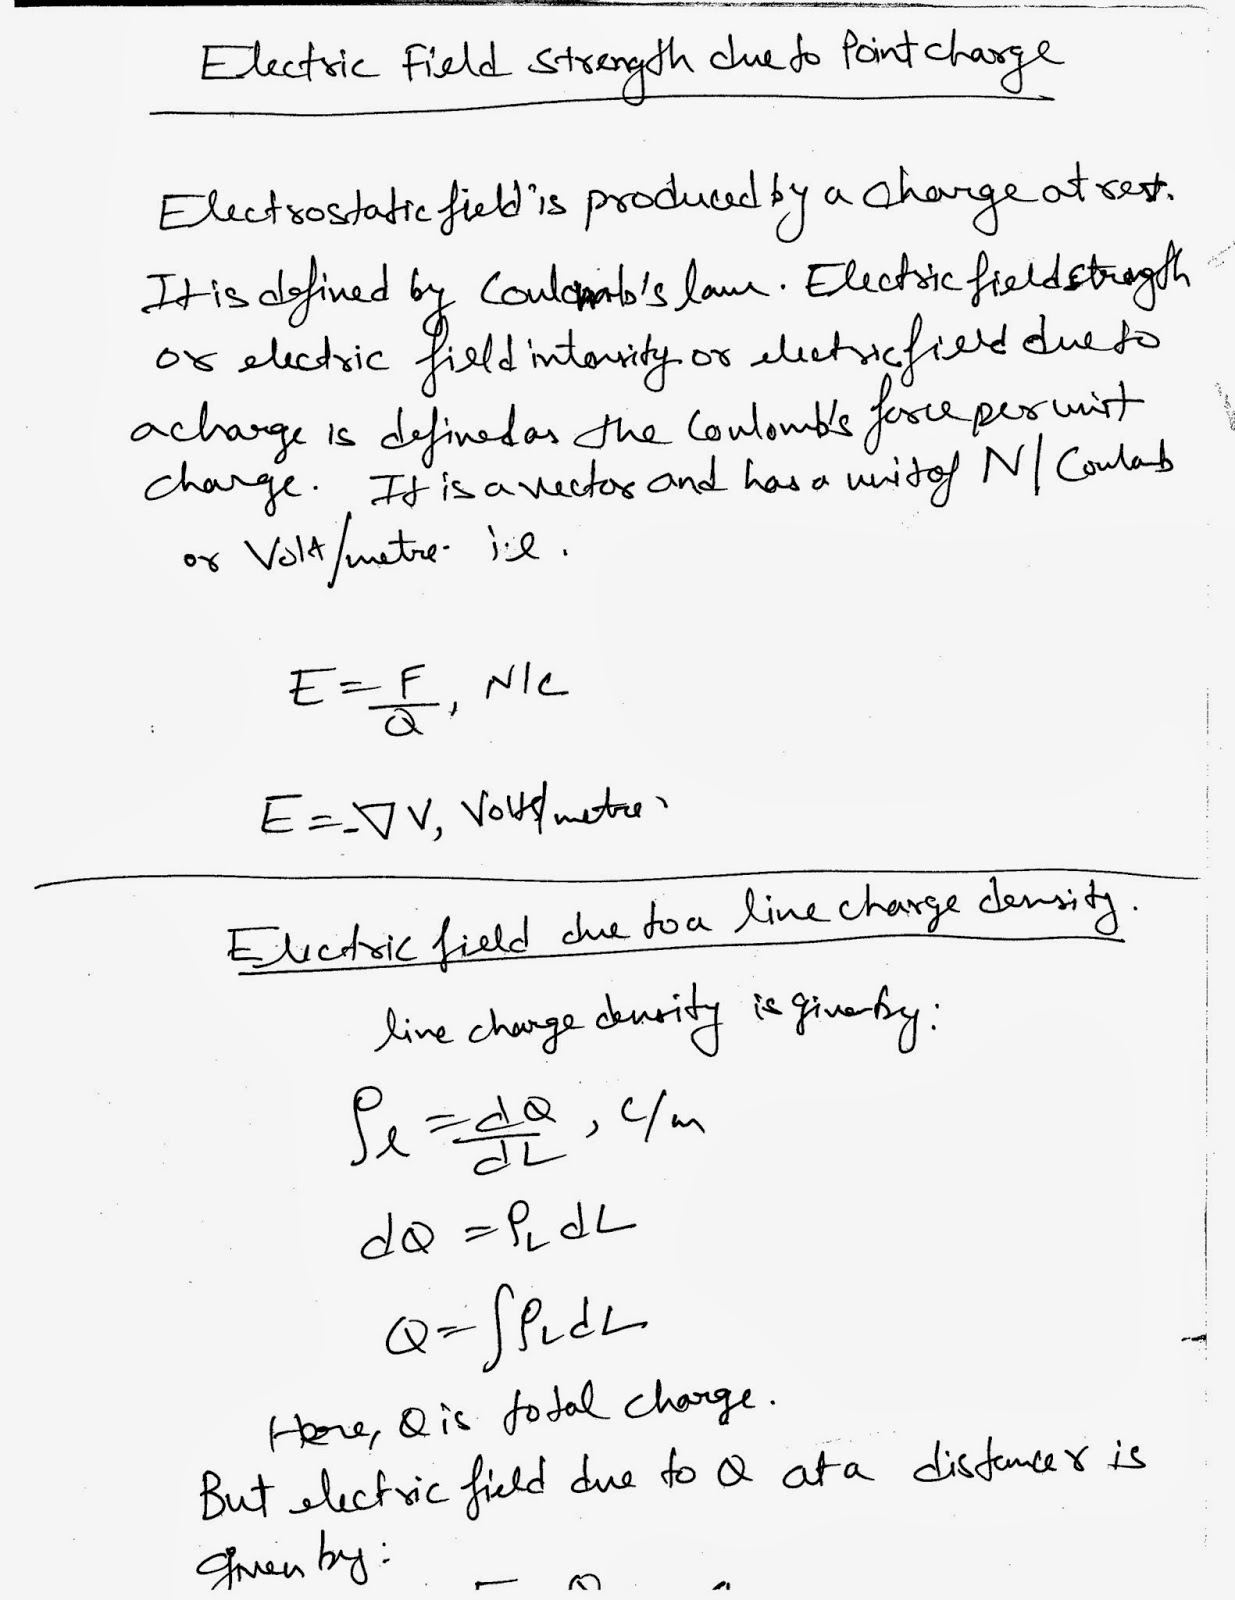 Electric Field Strength due to Point charge
Electrostatic field is produced by a charge at rest.
It is defined by Coulomb's law. Electric field strength
or electric field intensity or electric field due to
a charge is defined as the Coulomb's force per unit
charge. It is a vector and has a unit of N/Coulomb
or Volt/metre. i.e.
E = F/Q, N/C
E = -∇V, Volts/metre.
Electric field due to a line charge density.
line charge density is given by:
ρl = dQ/dL, C/m
dQ = ρL dL
Q = ∫ρL dL
Here, Q is total charge.
But electric field due to Q at a distance r is
given by: